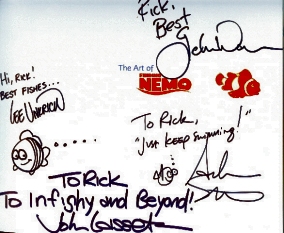 Rick,
Best
Hi, Rick!
BEST FISHES...
LEE UNKRICH
The Art of
FINDING
NEMO
To Rick,
"Just keep swimming!"
To Rick
To Infishy and Beyond!
John Lasseter